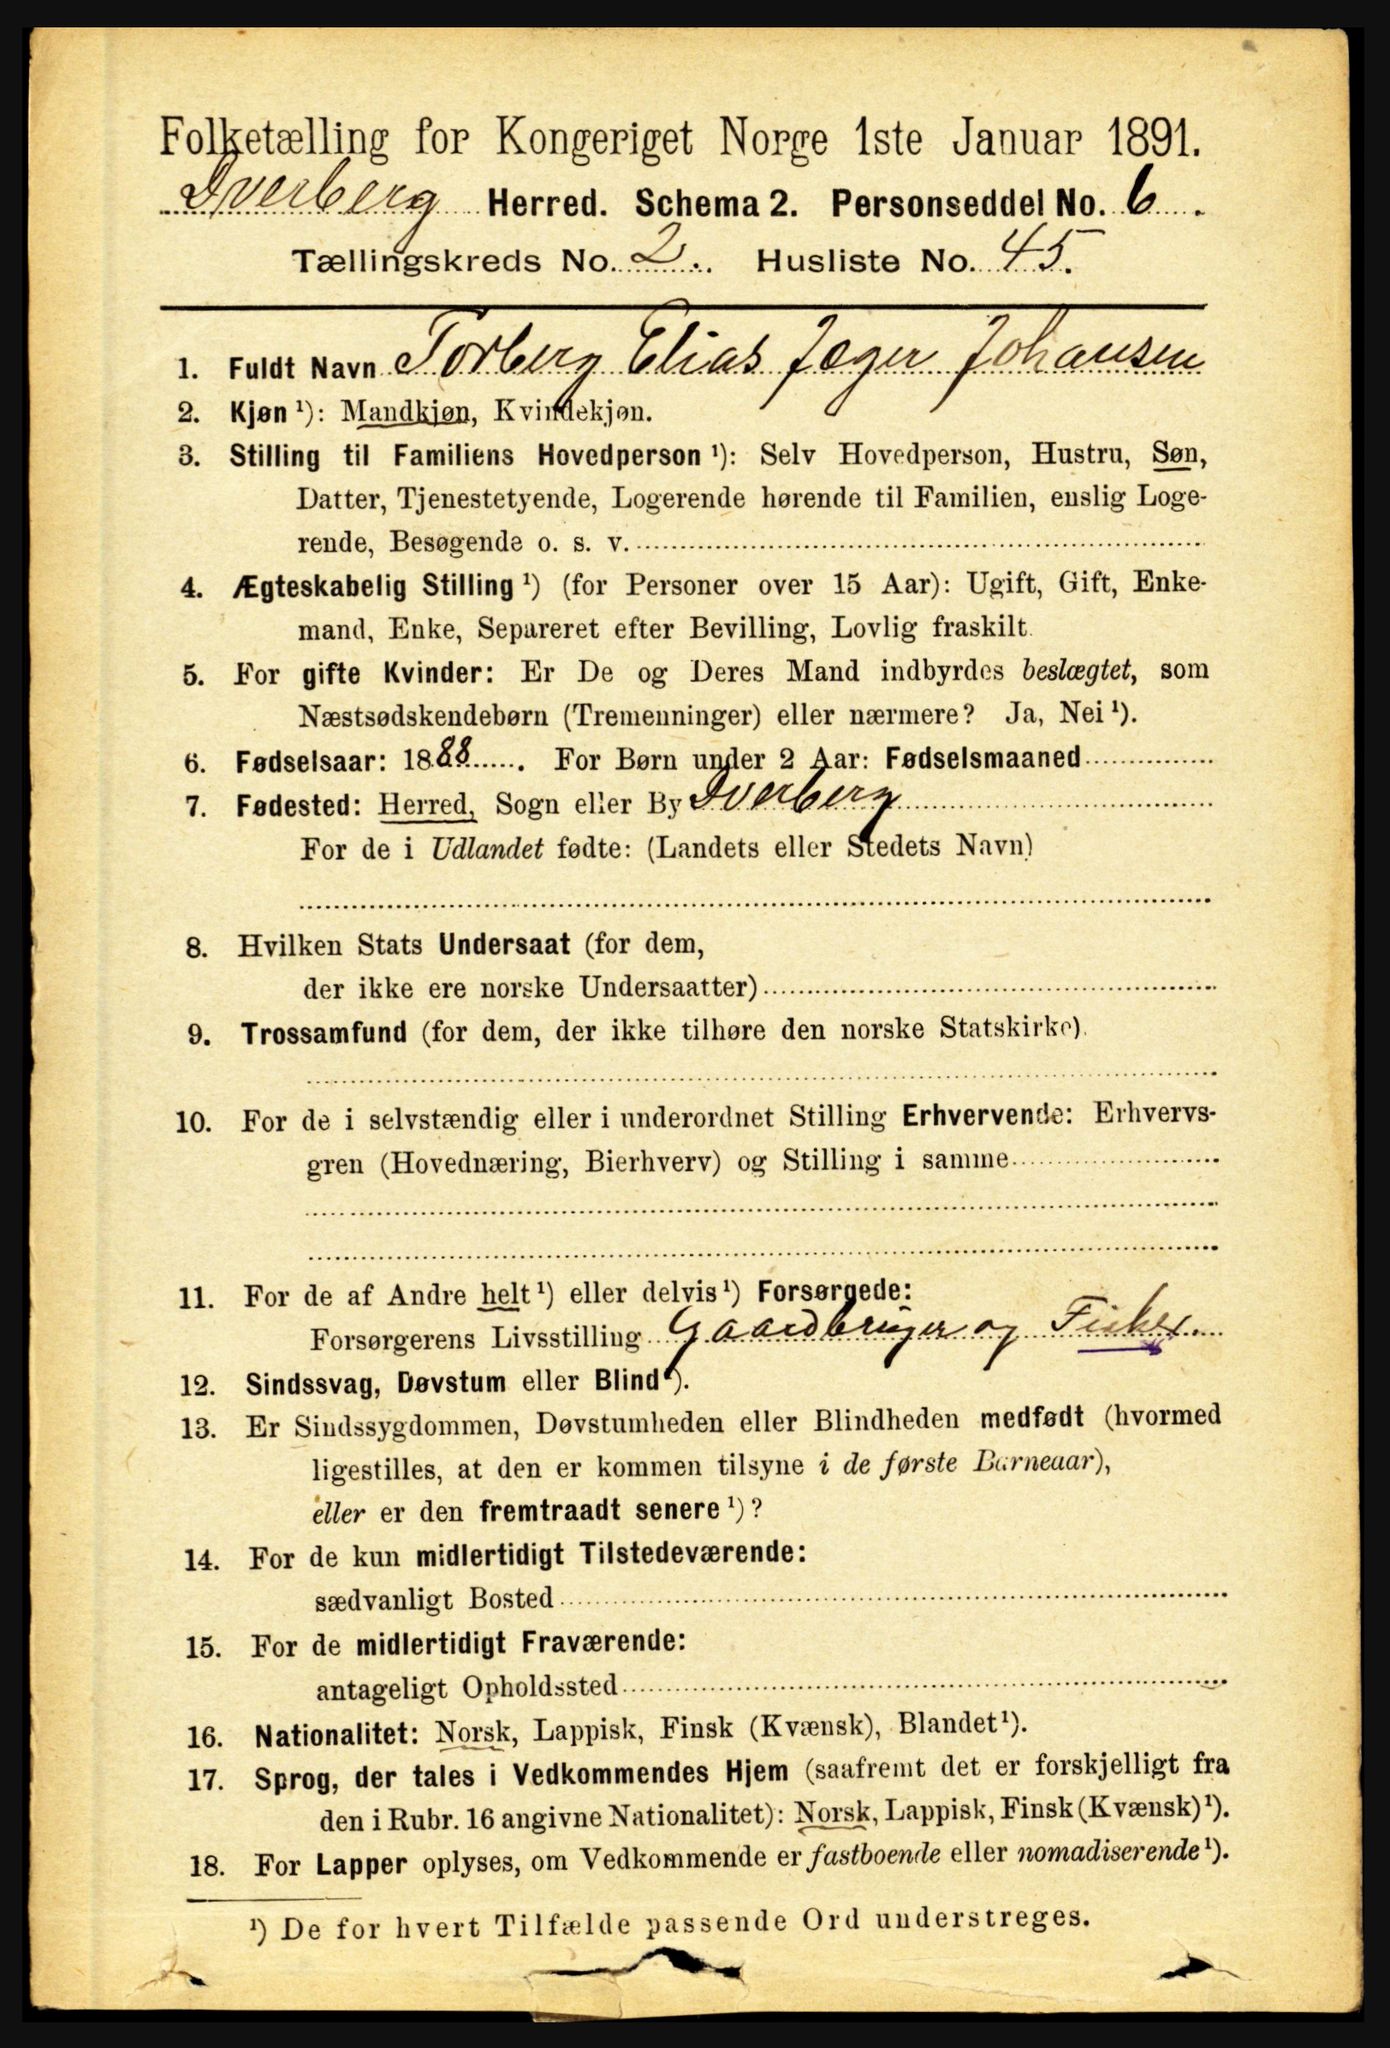 Folketælling for Kongeriget Norge 1ste Januar 1891.
Dverberg Herred. Schema 2. Personseddel No. 6.
Tællingskreds No. 2. Husliste No. 45.
1. Fuldt Navn Torberg Elias Jæger Johansen
2. Kjøn ¹): Mandkjøn, Kvindekjøn.
3. Stilling til Familiens Hovedperson ¹): Selv Hovedperson, Hustru, Søn,
Datter, Tjenestetyende, Logerende hørende til Familien, enslig Loge-
rende, Besøgende o. s. v.
4. Ægteskabelig Stilling ¹) (for Personer over 15 Aar): Ugift, Gift, Enke-
mand, Enke, Separeret efter Bevilling, Lovlig fraskilt.
5. For gifte Kvinder: Er De og Deres Mand indbyrdes beslægtet, som
Næstsødskendebørn (Tremenninger) eller nærmere? Ja, Nei ¹).
6. Fødselsaar: 1888. For Børn under 2 Aar: Fødselsmaaned
7. Fødested: Herred, Sogn eller By Dverberg
For de i Udlandet fødte: (Landets eller Stedets Navn)
8. Hvilken Stats Undersaat (for dem,
der ikke ere norske Undersaatter)
9. Trossamfund (for dem, der ikke tilhøre den norske Statskirke).
10. For de i selvstændig eller i underordnet Stilling Erhvervende: Erhvervs-
gren (Hovednæring, Bierhverv) og Stilling i samme
11. For de af Andre helt ¹) eller delvis ¹) Forsørgede:
Forsørgerens Livsstilling Gaardbruger og Fisker.
12. Sindssvag, Døvstum eller Blind ¹).
13. Er Sindssygdommen, Døvstumheden eller Blindheden medfødt (hvormed
ligestilles, at den er kommen tilsyne i de første Barneaar),
eller er den fremtraadt senere ¹)?
14. For de kun midlertidigt Tilstedeværende:
sædvanligt Bosted
15. For de midlertidigt Fraværende:
antageligt Opholdssted
16. Nationalitet: Norsk, Lappisk, Finsk (Kvænsk), Blandet ¹).
17. Sprog, der tales i Vedkommendes Hjem (saafremt det er forskjelligt fra
den i Rubr. 16 angivne Nationalitet): Norsk, Lappisk, Finsk (Kvænsk) ¹).
18. For Lapper oplyses, om Vedkommende er fastboende eller nomadiserende ¹).
¹) De for hvert Tilfælde passende Ord understreges.